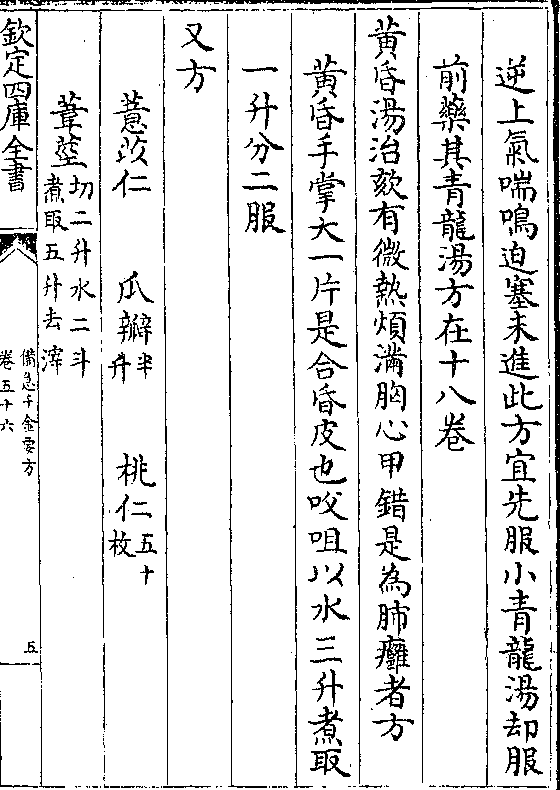 逆上氣喘鳴迫塞未進此方宜先服小青龍湯却服
前藥其青龍湯方在十八卷
黄昏湯治欬有微熱煩滿胸心甲錯是為肺癰者方
黄昏手掌大一片是合昏皮也㕮咀以水三升煮取
一升分二服
又方
薏苡仁 瓜瓣半升 桃仁五十二枚
葦莖切二升水二斗煮取五升去滓
欽定四庫全書
備急千金要方
卷五十六
五